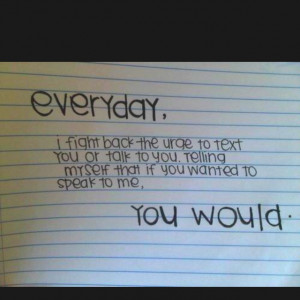 everyday,
I fight back the urge to text
you or talk to you. Telling
myself that if you wanted to
speak to me,
you would.